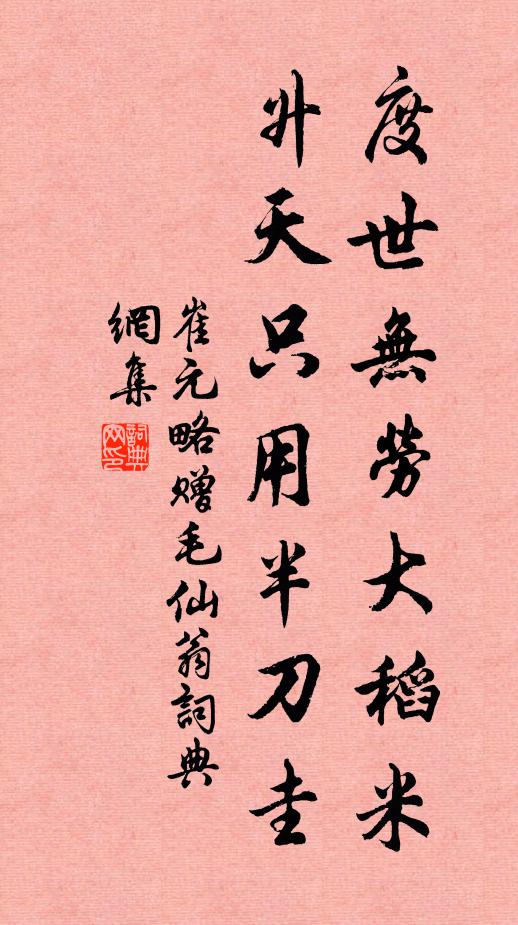 度世無勞大稻米
升天只用半刀圭
崔元略赠毛仙翁詞典
網集
詞典
网印